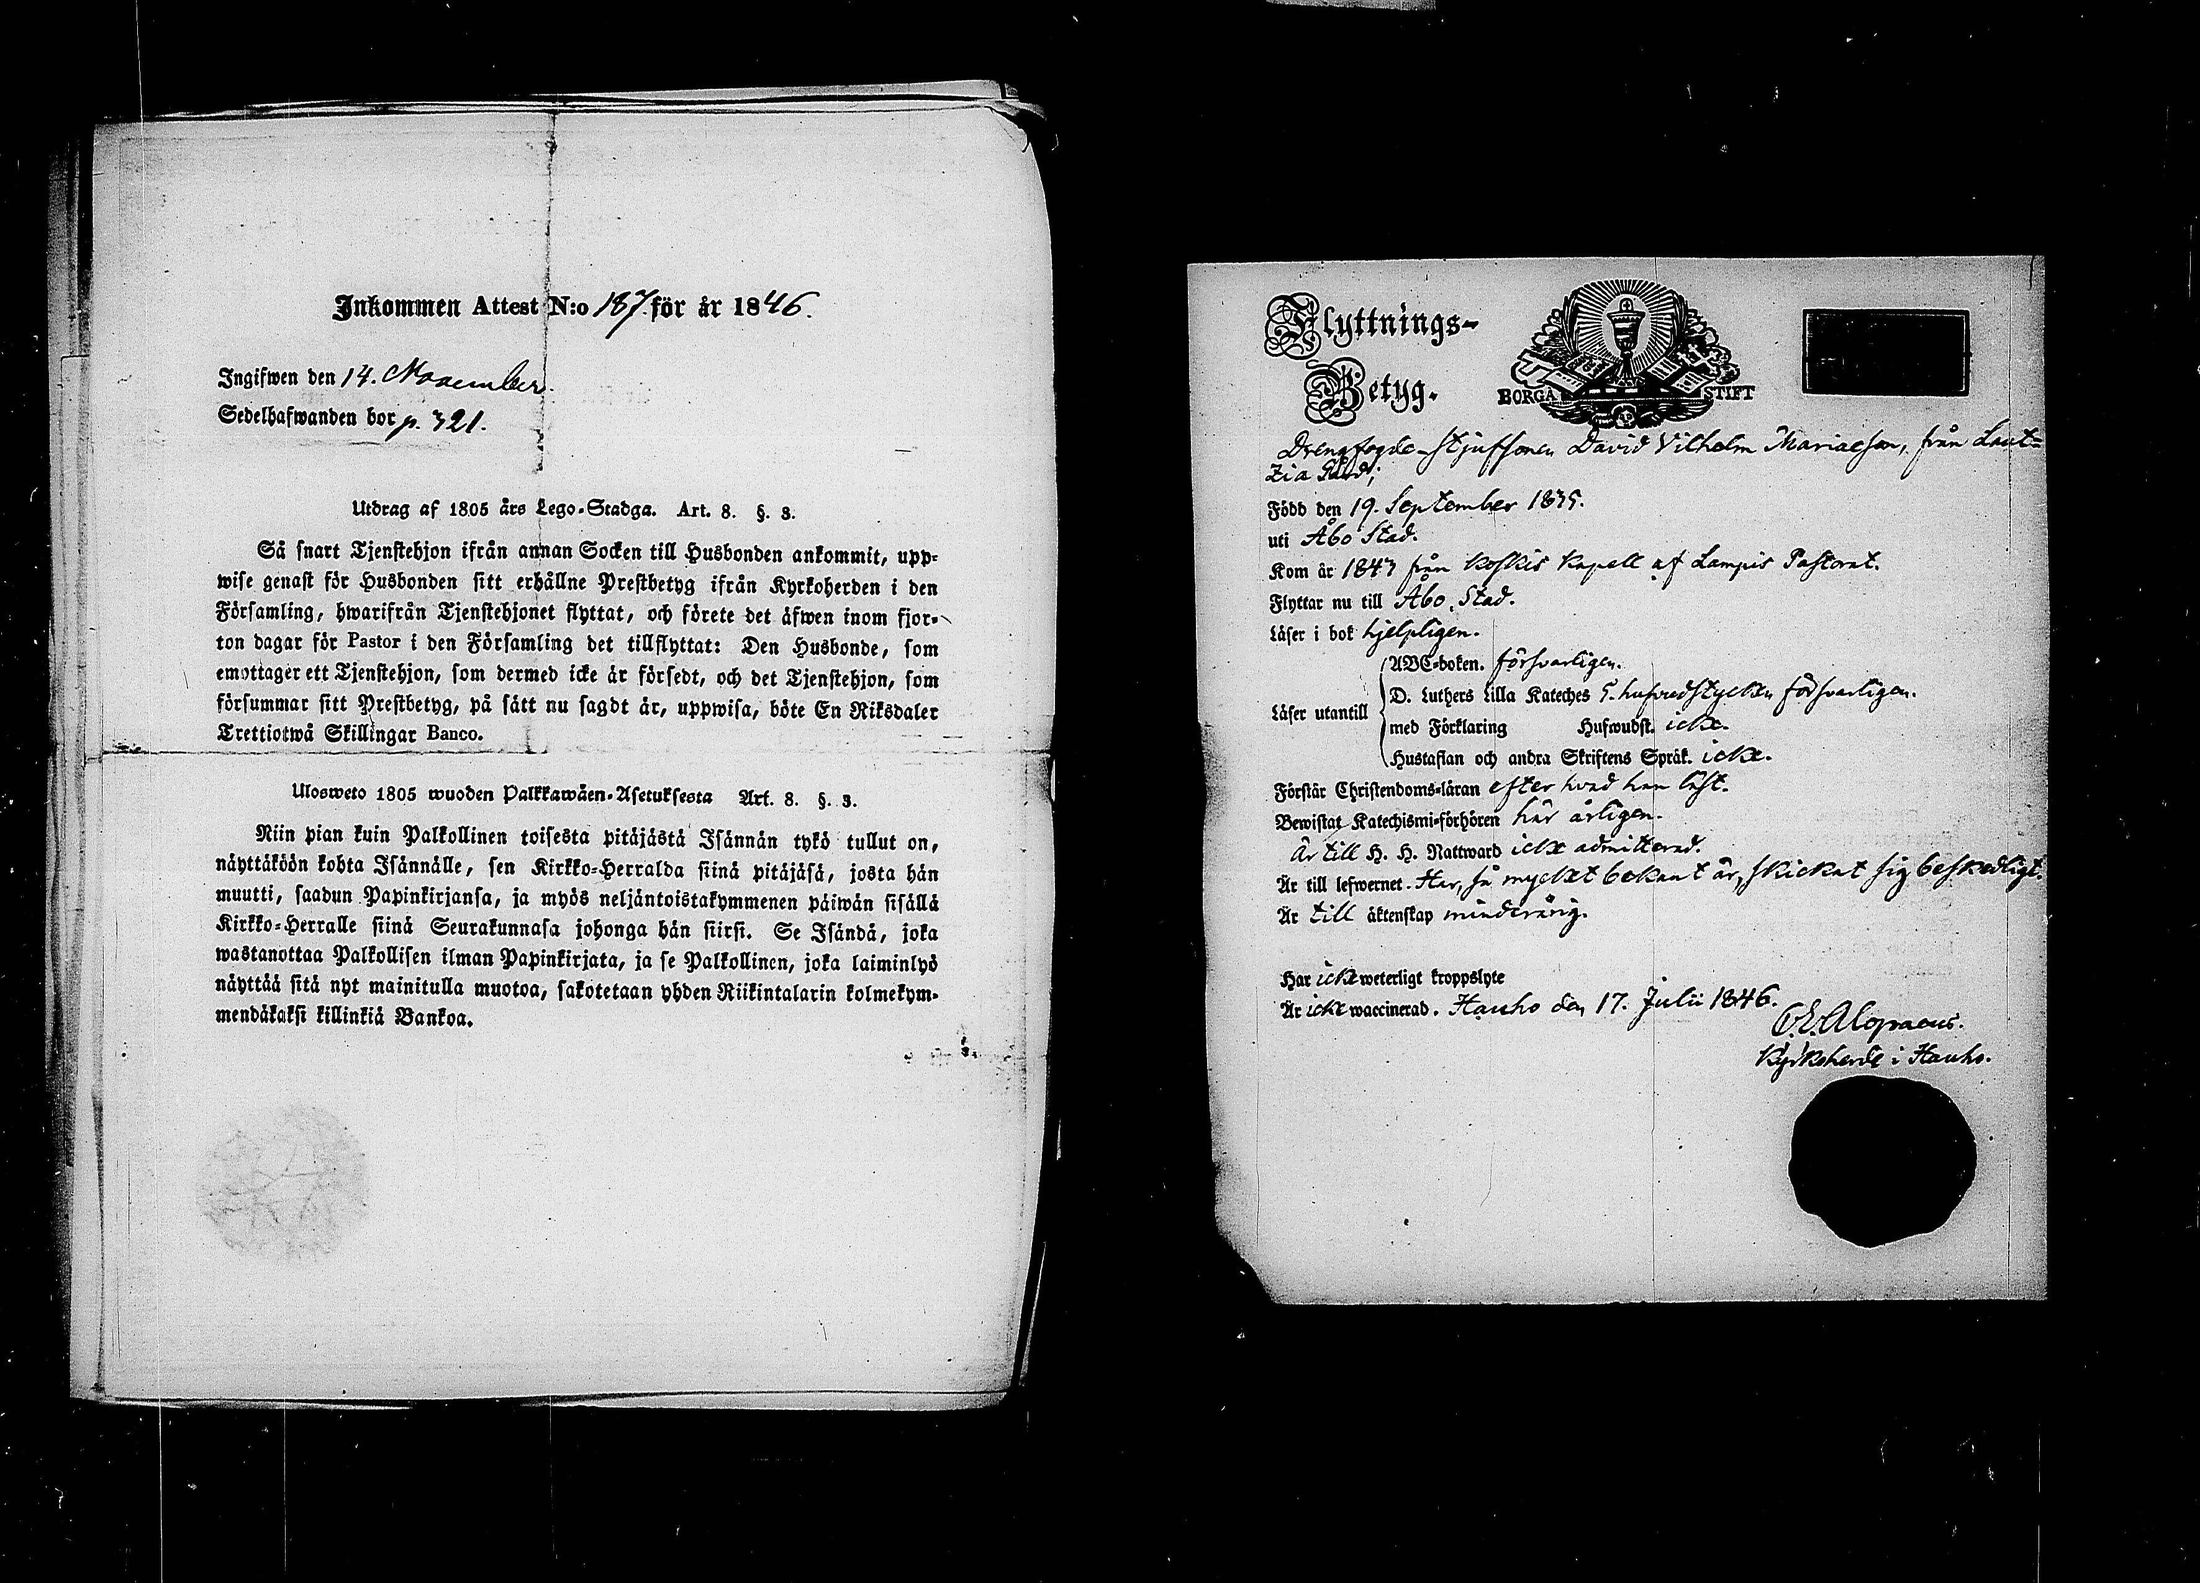 Inkommen Attest N:o 187. för år 1846.
Ingifwen den 14. November.
Sedelhafwanden bor p. 321.
Utdrag af 1805 års Lego-Stadga. Art. 8. §. 3.
Så snart Tjenstehjon ifrån annan Socken till Husbonden ankommit, upp-
wise genast för Husbonden sitt erhållne Prestbetyg ifrån Kyrkoherden i den
Församling, hwarifrån Tjenstehjonet flyttat, och förete det äfwen inom fjor-
ton dagar för Pastor i den Församling det tillflyttat: Den Husbonde, som
emottager ett Tjenstehjon, som dermed icke är försedt, och det Tjenstehjon, som
försummar sitt Prestbetyg, på sätt nu sagdt är, uppwisa, böte En Riksdaler
Trettiotwå Skillingar Banco.
Ulosweto 1805 wuoden Palkkawäen-Asetuksesta Art. 8. §. 3.
Niin pian kuin Palkollinen toisesta pitäjästä Isännän tykö tullut on,
näyttäköön kohta Isännälle, sen Kirkko-Herralda siinä pitäjäsä, josta hän
muutti, saadun Papinkirjansa, ja myös neljäntoistakymmenen päiwän sisällä
Kirkko-Herralle siinä Seurakunnasa johonga hän siirsi. Se Isändä, joka
wastanottaa Palkollisen ilman Papinkirjata, ja se Palkollinen, joka laiminlyö
näyttää sitä nyt mainitulla muotoa, sakotetaan yhden Riikintalarin kolmekym-
mendäkaksi killinkiä Bankoa.
Flyttnings-
Betyg.
BORGÅ STIFT
Drengfogde-Stjufsonen David Vilhelm Mariaeson, från Laut=
zia Gård;
Född den 19. September 1835.
uti Åbo Stad.
Kom år 1843 från Koskis Kapell af Lampis Pastorat.
Flyttar nu till Åbo Stad.
Läser i bok hjelpligen.
Läser utantill
ABC-boken. försvarligen.
D. Luthers Lilla Kateches 5. hufvudstycken försvarligen.
med Förklaring Hufwudst. icke.
Hustaflan och andra Skriftens Språk. icke.
Förstår Christendoms-läran efter hvad han läst.
Bewistat Katechismi-förhören här årligen.
Är till H. H. Nattward icke admitterad.
Är till lefwernet. Har, så mycket bekant är, skickat sig beskedligt.
Är till äktenskap minderårig.
Har icke weterligt kroppslyte
Är icke waccinerad. Hauho den 17. Julii 1846.
Alopaeus.
Kyrkoherde i Hauho.